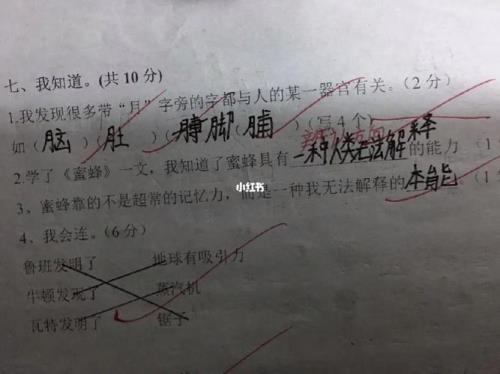 七、我知道。(共10分)
1.我发现很多带“月”字旁的字都与人的某一器官有关。(2分)
如(脑)(肚)(膊脚(脯)(写4个)
2.学了《蜜蜂》一文,我知道了蜜蜂具有一种人类无法解释的能力 (1
小红书
3、蜜蜂靠的不是超常的记忆力,而是一种我无法解释的本能。(1
4、我会连。(6分)
鲁班发明了 地球有吸引力
牛顿发现了 蒸汽机
瓦特发明了 锯子